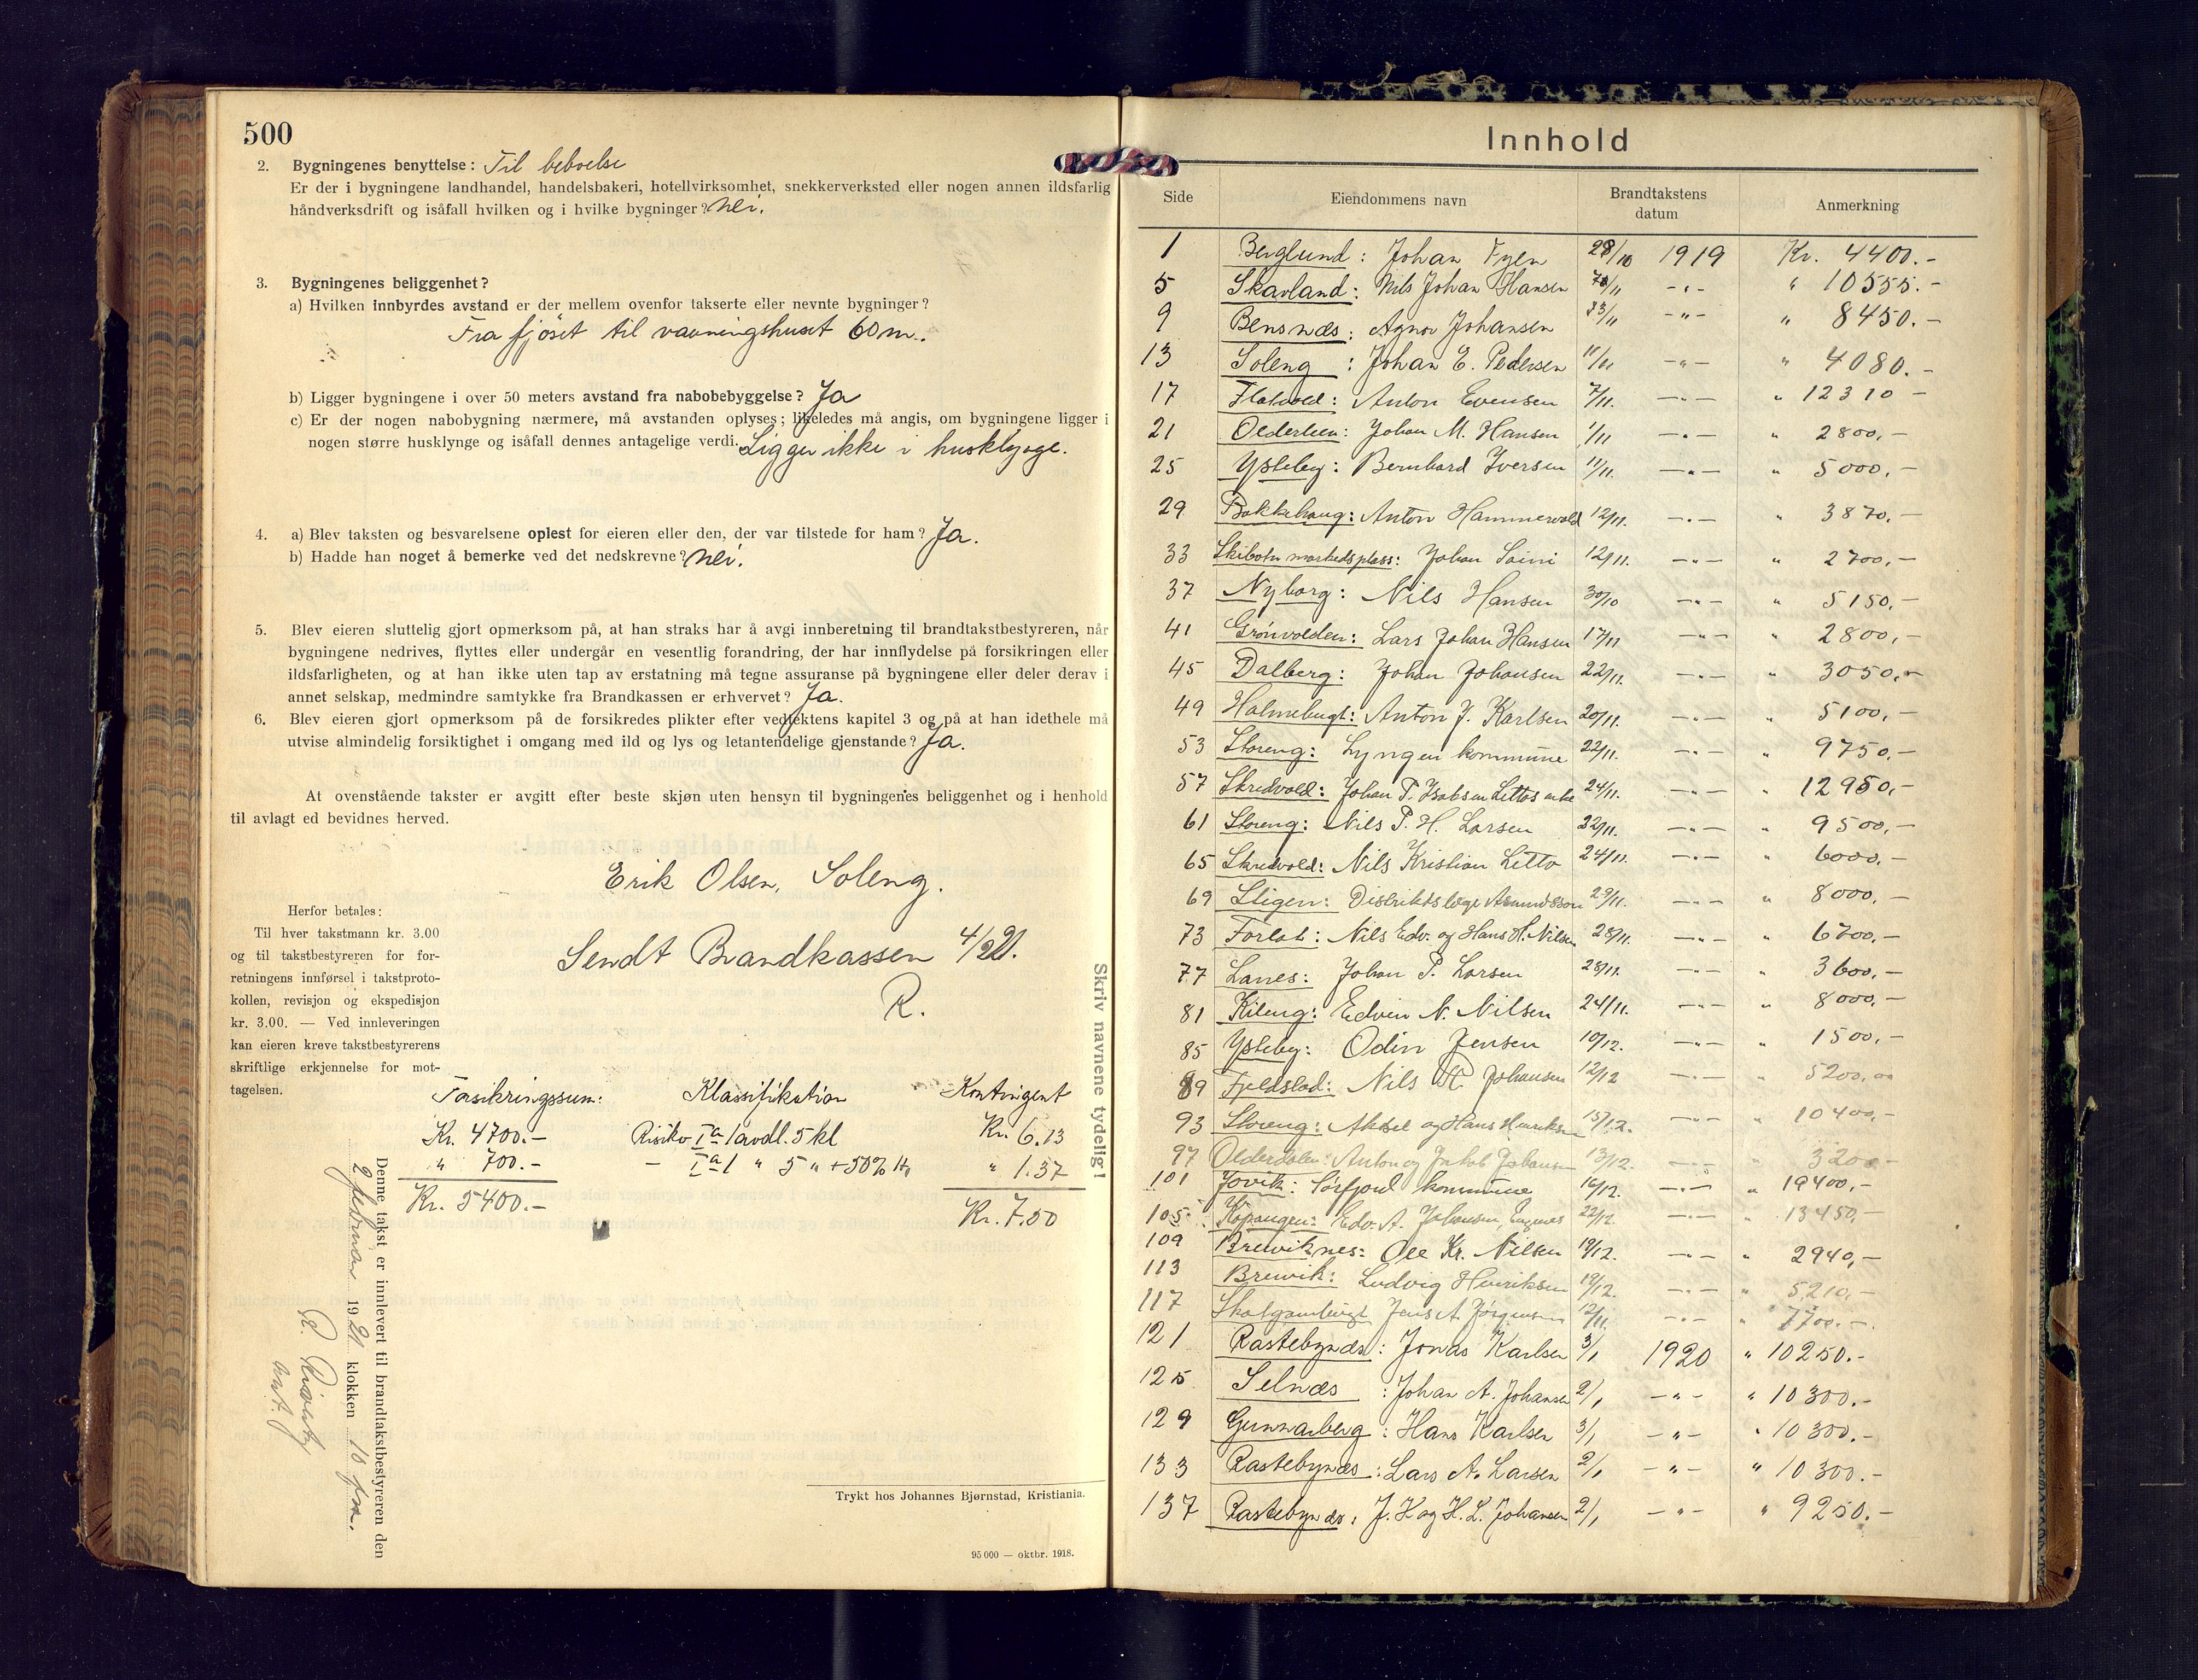 500
2. Bygningenes benyttelse: Til beboelse
Er der i bygningene landhandel, handelsbakeri, hotellvirksomhet, snekkerverksted eller nogen annen ildsfarlig
håndverksdrift og isåfall hvilken og i hvilke bygninger? Nei.
3. Bygningenes beliggenhet?
a) Hvilken innbyrdes avstand er der mellem ovenfor takserte eller nevnte bygninger?
Fra fjöset til vaaningshuset 60 m.
b) Ligger bygningene i over 50 meters avstand fra nabobebyggelse? Ja
c) Er der nogen nabobygning nærmere, må avstanden oplyses; likeledes må angis, om bygningene ligger i
nogen større husklynge og isåfall dennes antagelige verdi. Ligger ikke i husklynge.
4. a) Blev taksten og besvarelsene oplest for eieren eller den, der var tilstede for ham? Ja.
b) Hadde han noget å bemerke ved det nedskrevne? Nei.
5. Blev eieren sluttelig gjort opmerksom på, at han straks har å avgi innberetning til brandtakstbestyreren, når
bygningene nedrives, flyttes eller undergår en vesentlig forandring, der har innflydelse på forsikringen eller
ildsfarligheten, og at han ikke uten tap av erstatning må tegne assuranse på bygningene eller deler derav i
annet selskap, medmindre samtykke fra Brandkassen er erhvervet? Ja.
6. Blev eieren gjort opmerksom på de forsikredes plikter efter vedtektens kapitel 3 og på at han idethele må
utvise almindelig forsiktighet i omgang med ild og lys og letantendelige gjenstande? Ja.
At ovenstående takster er avgitt efter beste skjøn uten hensyn til bygningenes beliggenhet og i henhold
til avlagt ed bevidnes herved.
Erik Olsen, Soleng.
Sendt Brandkassen 4/2 21.
R.
Herfor betales:
Til hver takstmann kr. 3.00
og til takstbestyreren for for-
retningens innførsel i takstproto-
kollen, revisjon og ekspedisjon
kr. 3.00. — Ved innleveringen
kan eieren kreve takstbestyrerens
skriftlige erkjennelse for mot-
tagelsen.
Forsikringssum: Klassifikation Kontingent
Kr. 4700.- Risiko Ia 1 avdl. 5 kl Kr. 6.13
" 700.- - Ia 1 " 5 " + 50% " 1.37
Kr. 5400.- Kr. 7.50
Denne takst er innlevert til brandtakstbestyreren den
2 februar 1921 klokken 10 fm.
Skriv navnene tydelig!
Trykt hos Johannes Bjørnstad, Kristiania.
95 000 — oktbr. 1918.
Innhold
Side Eiendommens navn Brandtakstens datum Anmerkning
1 Berglund: Johan Fyen 28/10 1919 Kr. 4400.-
5 Skavland: Nils Johan Hansen -"- " 10555.-
9 Bensnæs: Agnor Johansen -"- " 8450.-
13 Soleng: Johan E. Pedersen -"- " 4080.-
17 Flatvold: Anton Evensen 7/11. -"- " 12310 -
21 Olderlien: Johan M. Hansen 1/11 -"- " 2800,-
25 Ysteby: Bernhard Iversen 11/11. -"- " 5000,-
29 Bakkehaug: Anton Hammervold 12/11. -"- " 3870,-
33 Skibotn markedsplass: Johan Saini 12/11. -"- " 2700,-
37 Nyborg: Nils Hansen 30/10 -"- " 5150,-
41 Grønvolden: Lars Johan Hansen 17/11 -"- " 2800,-
45 Dalberg: Johan Johansen 22/11. -"- " 3050,-
49 Holmebugt: Anton J. Karlsen 20/11. -"- " 5100,-
53 Storeng: Lyngen kommune 22/11. -"- " 9750,-
57 Skredvold: Johan P. Isaksen Littos enke 24/11. -"- " 12950,-
61 Storeng: Nils P. H. Larsen 22/11. -"- " 9500,-
65 Skredvold: Nils Kristian Litto 24/11. -"- " 6000,-
69 Stigen: Distriktslæge Asmundsson 29/11. -"- " 8000,-
73 Forlat: Nils Edv. og Hans H. Nilsen 28/11. -"- " 6700,-
77 Lanes: Johan P. Larsen 28/11. -"- " 3600,-
81 Kileng: Edvin N. Nilsen 24/11. -"- " 8000,-
85 Ysteby: Odin Jensen 10/12. -"- " 1500,-
89 Fjeldstad: Nils Johansen 12/12 -"- " 5200,00
93 Storeng: Aksel og Hans Henriksen 15/12. -"- " 10400,-
97 Olderdalen: Anton og Jakob Johansen 13/12. -"- " 3200 -
101 Jovik: Sørfjord kommune 16/12. -"- " 19400,-
105 Kopangen: Edv. A. Johansen, Engnes 22/12. -"- " 13450,-
109 Breiviknes: Ole Kr. Nilsen 19/12. -"- " 2940,-
113 Breivik: Ludvig Henriksen 19/12. -"- " 5210,-
117 Jens A. Jörgensen 12/11. -"- " 7700.-
121 Rastebynæs: Jonas Karlsen 3/1 1920 " 10250.-
125 Selnæs: Johan A. Johansen 2/1 -"- " 10300.-
129 Gunnarberg: Hans Karlsen 3/1 -"- " 10300.-
133 Rastebynæs: Lars A. Larsen 2/1 -"- " 10300.-
137 Rastebynæs: J. H og H. L. Johansen 2/1 -"- " 9250.-